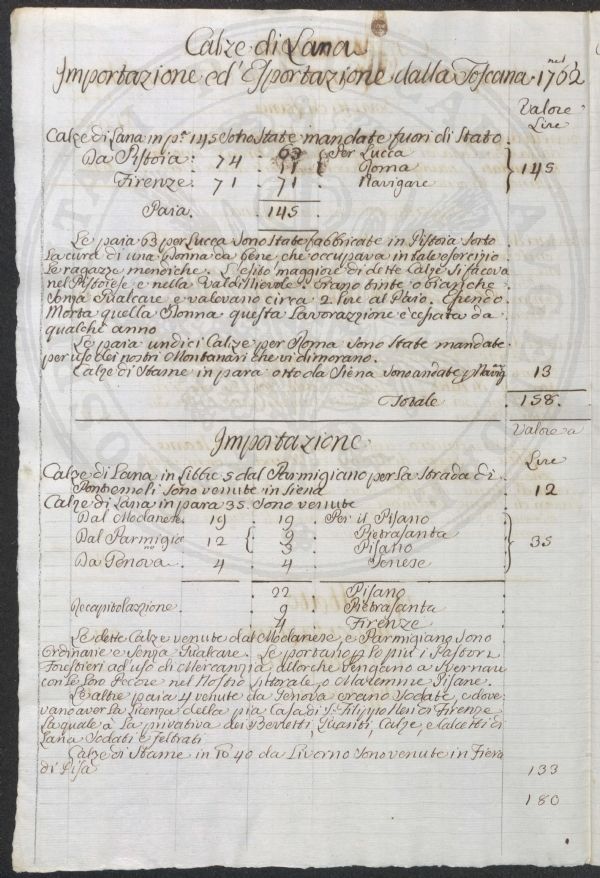 Calze di Lana
Importazione ed' Esportazione dalla Toscana nel 1762
Valore
Lire
Calze di Lana in p.ª 145 Sono State mandate fuori di Stato
Da Pistoia: 74 63 Per Lucca
11 Roma 145
Firenze: 71 71 Navigare
Paia. 145
Le paia 63 per Lucca Sono State fabbricate in Pistoia Sotto
La cura di una Donna da bene che occupava in tale esercizio
Le ragazze mendiche. L'esito maggiore di dette Calze Si faceva
nel Pistoiese e nella Valdinievole. Erano tinte o bianche
Senza Gualcare e valevano circa 2 lire al Paio. Essendo
Morta quella Donna questa Lavorazzione è cessata da
qualche anno
Le paia undici Calze per Roma Sono State mandate
per uso dei nostri Montanari che vi dimorano.
Calze di Stame in para otto da Siena Sono andate p Navig 13
Totale 158.
Importazione
Valore
Lire
Calze di Lana in Libbre 5 dal Parmigiano per la Strada di
Pontremoli Sono venute in Siena 12
Calze di Lana in para 35. Sono venute
Dal Modanese. 19 19 Per il Pisano
Dal Parmigia no 12 9 Pietrasanta 35
3 Pisano
Da Genova. 4 4
22 Pisano
Recapitolazzione. 9 Pietrasanta
4 Firenze
Le dette Calze venute dal Modanese, e Parmigiano Sono
Ordinarie e Senza Gualcare. Le portano p lo più i Pastori
Forestieri ad uso di Mercanzia allorche Vengano a Svernare
con Le Loro Pecore nel Nostro Littorale, o Maremme Pisane.
Le altre paia 4 venute da Genova erano Sodate, e dove
vano aver La Licenza della pia Casa di S. Filippo Neri di Firenze
La quale à La privativa dei Berretti, Guanti, Calze, e Calcetti di
Lana Sodati e Feltrati
Calze di Stame in 40 da Livorno Sono venute in Fiera
di Pisa 133
180